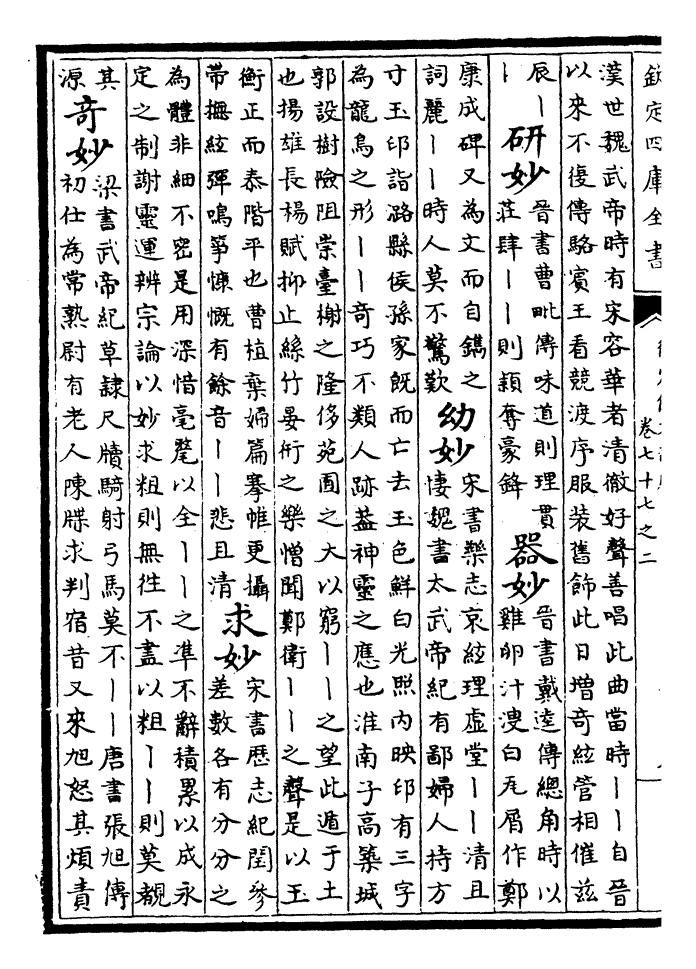 欽定四庫全書
卷七十七之二
漢世魏武帝時有宋容華者清徹好聲善唱此曲當時｜｜自晉
以來不復傳駱賓王看競渡序服裝舊飾此日增奇絃管相催茲
辰｜
｜
研妙
晉書曹毗傳味道則理貫
莊肆｜｜則穎奪豪鋒
器妙
晉書戴逵傳總角時以
雞卵汁溲白瓦屑作鄭
康成碑又為文而自鐫之
詞麗｜｜時人莫不驚歎
幼妙
宋書樂志哀絃理虛堂｜｜清且
悽魏書太武帝紀有鄙婦人持方
寸玉印詣潞縣侯孫家既而亡去玉色鮮白光照內映印有三字
為龍鳥之形｜｜奇巧不類人跡葢神靈之應也淮南子高築城
郭設樹險阻崇臺榭之隆侈苑囿之大以窮｜｜之望此遁于土
也揚雄長楊賦抑止絲竹晏衎之樂憎聞鄭衛｜｜之聲是以玉
衡正而泰階平也曹植棄婦篇搴帷更攝
帶撫絃彈鳴箏慷慨有餘音｜｜悲且清
求妙
宋書歷志紀閏參
差數各有分分之
為體非細不密是用深惜毫氂以全｜｜之準不辭積累以成永
定之制謝靈運辨宗論以妙求粗則無往不盡以粗｜｜則莫覩
其
源
奇妙
梁書武帝紀草隸尺牘騎射弓馬莫不｜｜唐書張旭傳
初仕為常熟尉有老人陳牒求判宿昔又來旭怒其煩責